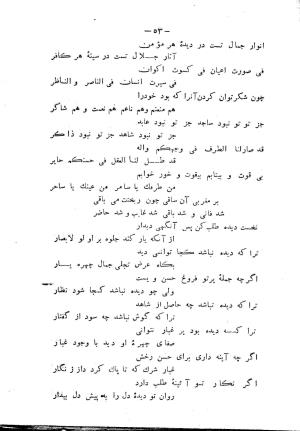 — ۵۳ —
انوار جمال تست در دیدهٔ هر مؤمن
آثار جلال تست در سینهٔ هر کافر
فی صورت اعیان فی کسوت اکوان
فی سیرت انسان فی الناصر و الناظر
چون شکر توان کردن آنرا که بود خود را
هم منعم وهم ناعم هم نعمت و هم شاکر
جز تو نبود ساجد جز تو نبود عابد
جز تو نبود شاهد جز تو نبود ذاکر
قد صارلنا الطرف فی وجهکم واله
قد ظل لنا العقل فی حسنکم حایر
بی قوت و بیتابم بیقوت و خور خوابم
من طرفك یا ساحر من عینك یا ساحر
بر مغربی آن ساقی چون ریخت می باقی
شد فانی و شد باقی شد غایب و شد حاضر
نخست دیده طلب کن پس آنگهی دیدار
از آنکه یار کند جلوه بر او لو لابصار
ترا که دیده نباشد کجا توانی دید
بگاه عرض تجلی جمال چهره یار
اگر چه جمله پرتو فروغ حسن و یست
ولی چو دیده نباشد کجا شود نظار
ترا که دیده نباشد چه حاصل از شاهد
ترا که گوش نباشد چه سود از گفتار
ترا که دیده بود پر غبار نتوانی
صفای چهرهٔ او دید با وجود غبار
اگر چه آینه داری برای حسن رخش
غبار شرك که تا پاك کرد داز ز نگار
اگر نگار تو آئینهٔ طلب دارد
روان تو دیدهٔ دل را به پیش دل بیدار